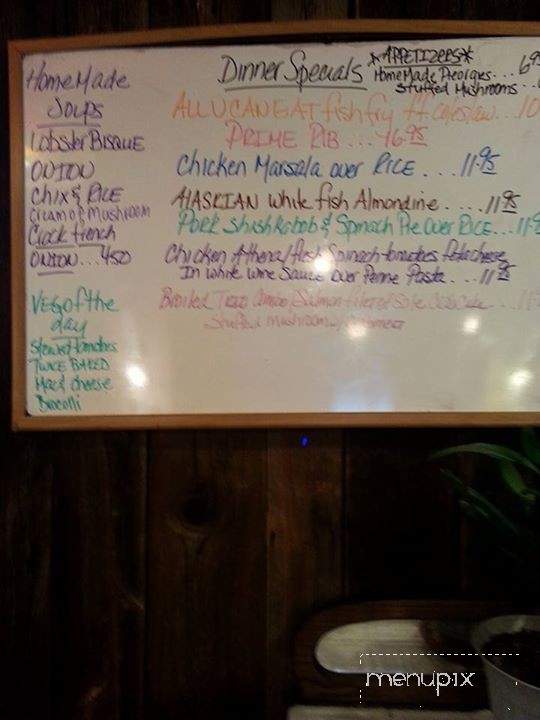 HomeMade
Soups
Lobster Bisque
ONION
Chix & RICE
Cream of Mushroom
Crock French
ONION...450
Veg of the
day
Stewed tomatoes
TWICE BAKED
Mac & cheese
Broccoli
Dinner Specials
*APPETIZERS*
HomeMade Pierogies...
Stuffed Mushrooms..
ALL U CAN EAT fish fry ft. coleslaw...10
PRIME RIB...16.95
Chicken Marsala over RICE....11.95
AlASKIAN white fish Almondine.....11.95
Pork Shishkabob & Spinach Pie Over RICE...11.
Chicken Athena/fresh Spinach-tomatoes feta cheese
In white wine Sauce over Penne Pasta...11.95
Broiled Trio Salmon filet of Sole
Stuffed Mushroom
menupix